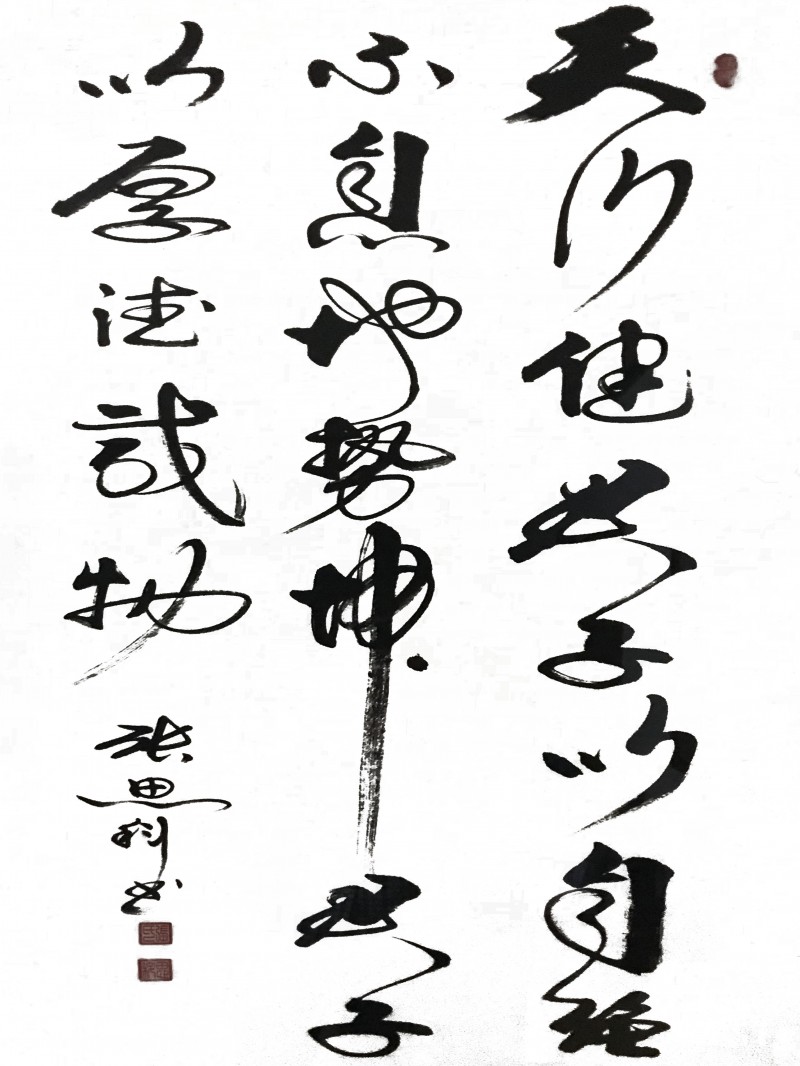 天行健君子以自强
不息地势坤君子
以厚德载物
张思科书